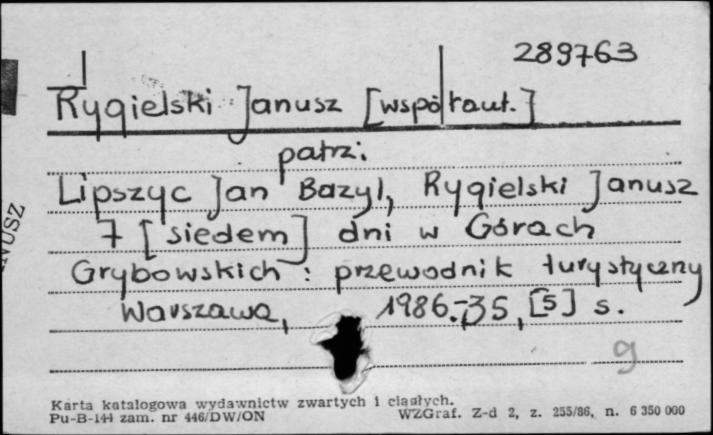 289763
Rygielski Janusz [współaut.]
patrz:
Lipszyc Jan Bazyl, Rygielski Janusz
7 [siedem] dni w Górach
Grybowskich : przewodnik turystyczny
Warszawa, 1986.- 35, [5] s.
g
Karta katalogowa wydawnictw zwartych i ciągłych.
Pu-B-144 zam. nr 446/DW/ON WZGraf. Z-d 2, z. 255/86, n. 6 350 000